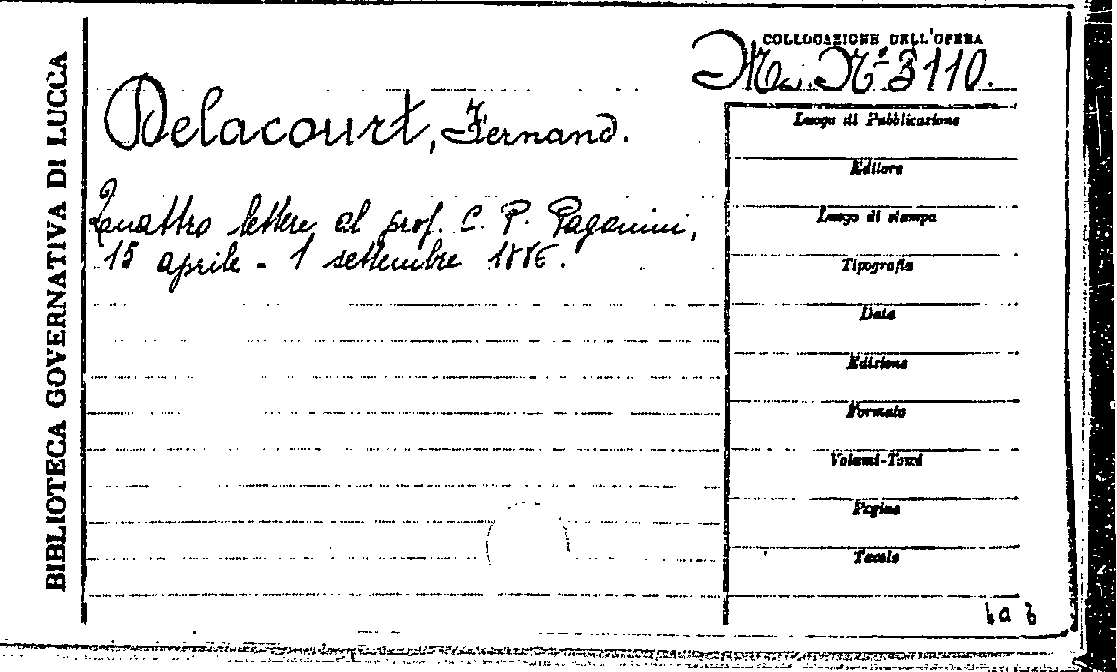 BIBLIOTECA GOVERNATIVA DI LUCCA
COLLOCAZIONE DELL'OPERA
Ms. Nº 3110.
Delacourt, Fernand.
Quattro lettere al prof. C. P. Paganini,
15 aprile - 1 settembre 1886.
Luogo di Pubblicazione
Editore
Luogo di stampa
Tipografia
Data
Edizione
Formato
Volumi-Tomi
Pagine
Tavole